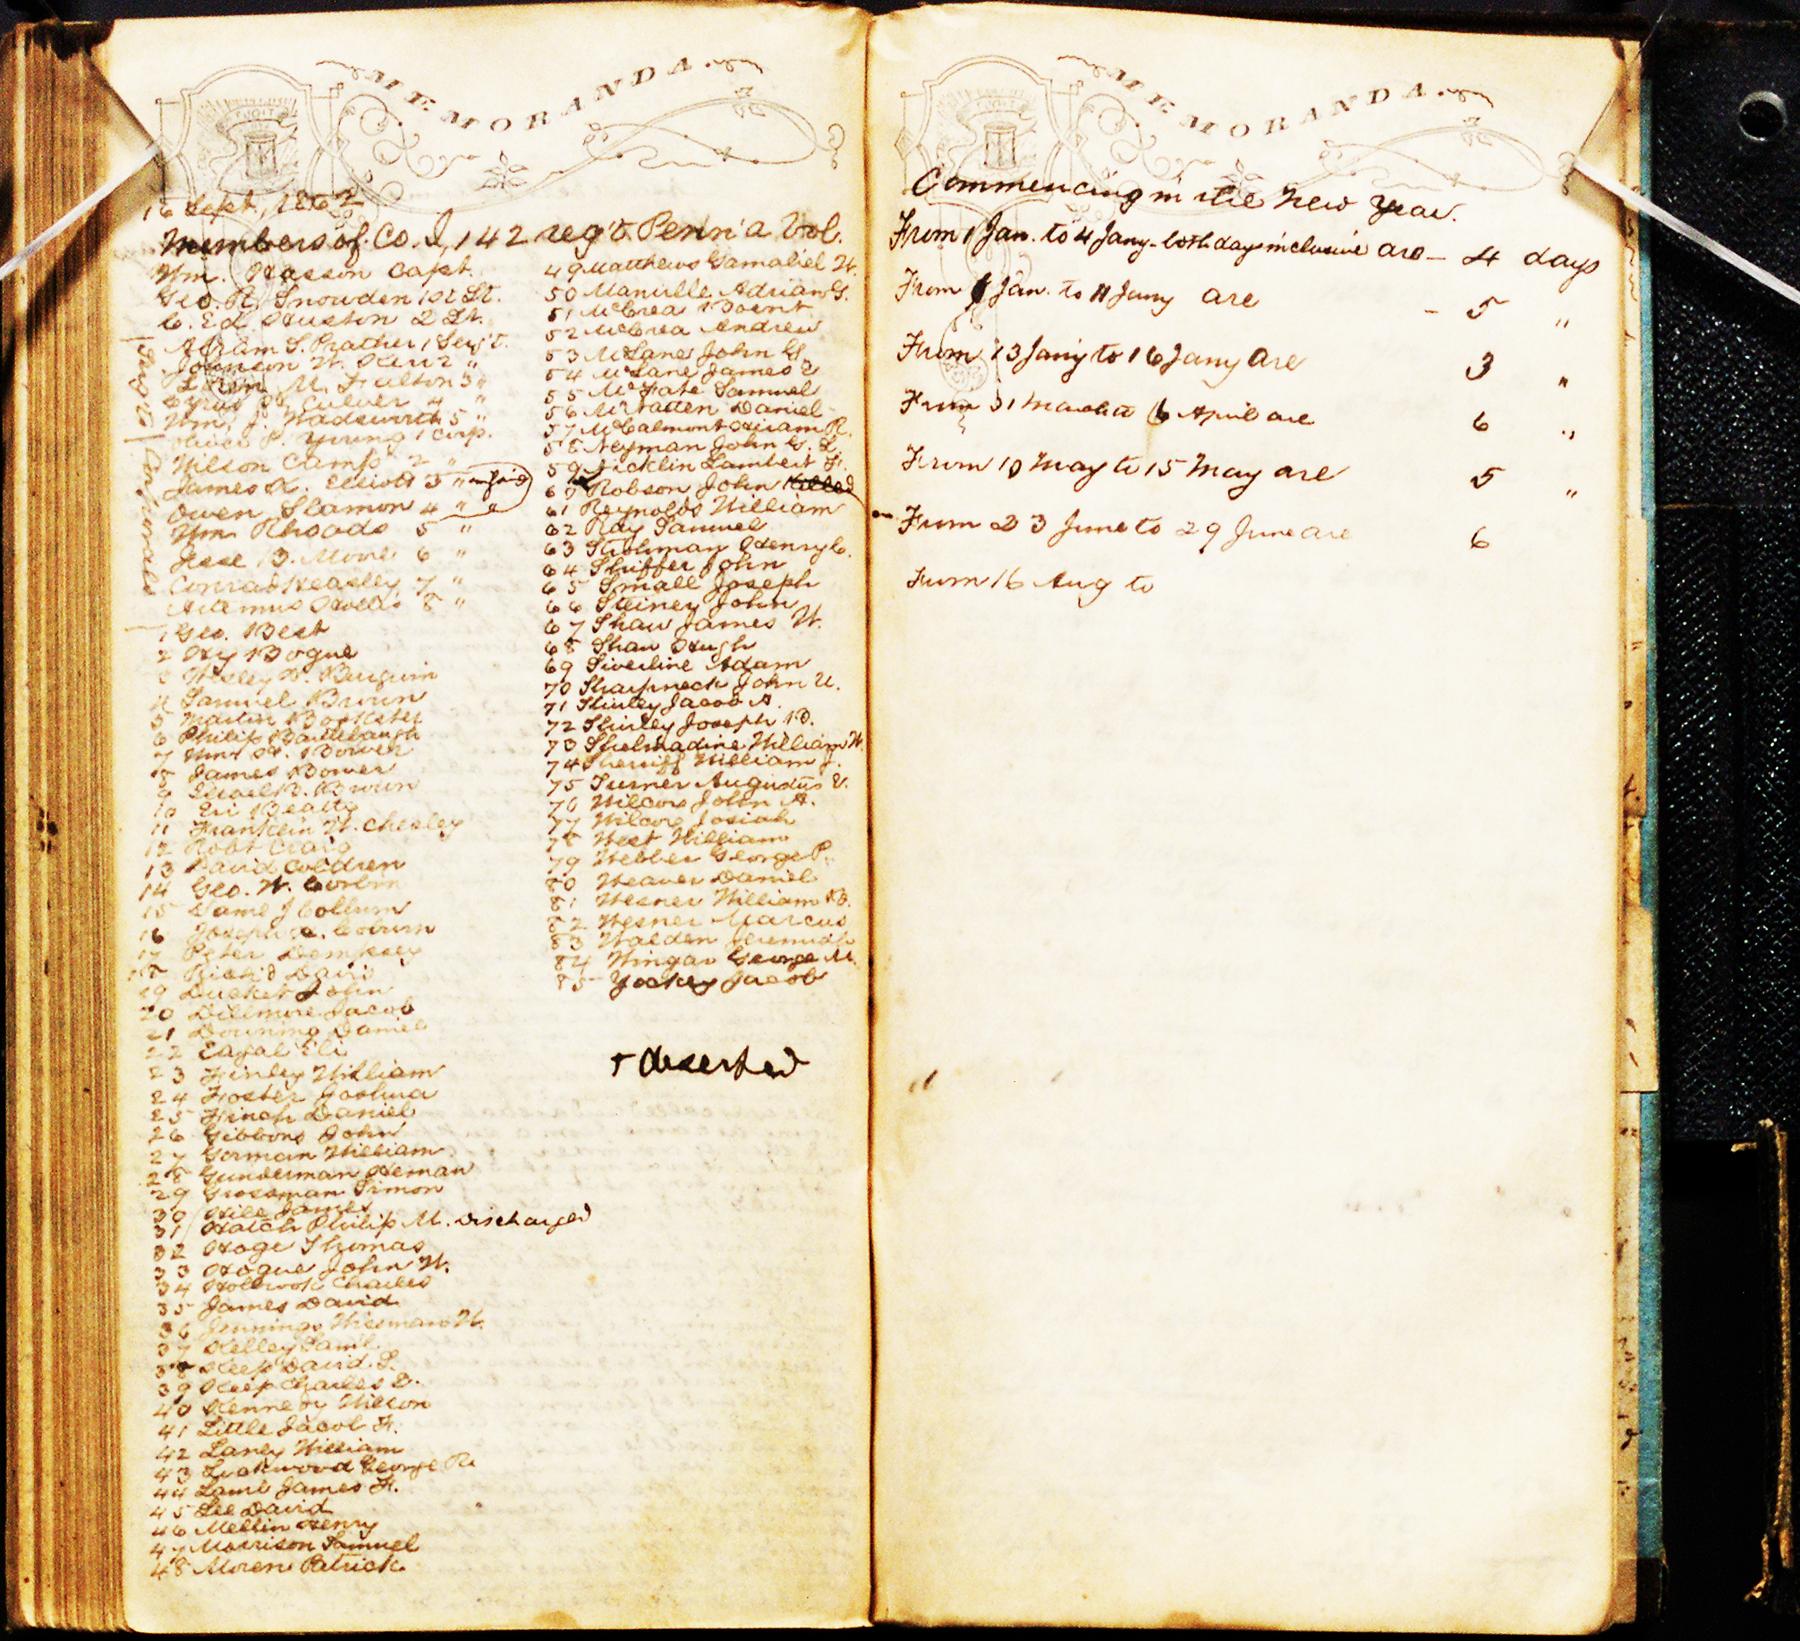 MEMORANDA.
16 Sept. 1862
Members of Co. I, 142 reg't Penn'a Vol.
Wm. Hasson Capt.
Geo. R. Snowden 1st Lt.
C. Ed Huston 2 Lt.
Sergts
Abram S. Prather 1 Serg't.
Johnson W. Kerr 2 "
M. Fulton 3 "
Cyrus Culver 4 "
Wm. J. Wadsworth 5 "
Corporals
P. Young 1 Corp.
Wilson Camp 2 "
James Elliott 3 "
Owen Slamon 4 "
Wm Rhoads 5 "
Jesse B. Moore 6 "
Conrad Heasley 7 "
Artemus Hollis 8 "
1 Geo. Best
2 Hy Bogue
3 Wesley
4 Samuel Brown
5 Martin
6 Philip Bartlebaugh
7 Wm H. Bower
8 James Bower
9 B. Brown
10 Eri Beatty
11 Franklin W. Chesley
12 Robt Craig
13 David Coldren
14 Geo. W. Corbin
15 J Collum
16 Joseph Coburn
17 Peter Dempsey
18 Rich'd Davis
19 Ducket John
20 Dillmore Jacob
21 Downing Daniel
22 Eagal Eli
23 Finley William
24 Foster Joshua
25 Finch Daniel
26 Gibbons John
27 Gorman William
28 Gunderman Heman
29 Grossman Simon
30 Hill James
31 Hatch Philip M. Discharged
32 Hoge Thomas
33 Hogue John W.
34 Holbrook Charles
35 James David
36 Jennings W.
37 Kelley Saml.
38 Keep David S.
39 Keep Charles D.
40 Kennedy Wilson
41 Little Jacob F.
42 Laney William
43 Lockwood George R.
44 Lamb James F.
45 Lee David
46 Mellin Henry
47 Morrison Samuel
48 Moren Patrick
49 Matthews Gamaliel W.
50 Manville Adrian G.
51 McCrea Robert
52 McCrea Andrew
53 McLane John G.
54 McLane James
55 McFate Samuel
56 Daniel
57 McCalmont Hiram R.
58 Neyman John G. L.
59 Nicklin Lambert F.
60 Robson John Killed
61 Reynolds William
62 Ray Samuel
63 Strohman Henry C.
64 Shiffer John
65 Small Joseph
66 Steiney John
67 Shaw James W.
68 Shaw Hugh
69 Siverline Adam
70 Sharpneck John U.
71 Shirley Jacob A.
72 Shirley Joseph B.
73 Shelmadine William W.
74 Sherriff William J.
75 Turner Augustus V.
76 Wilcox John A.
77 Wilcox Josiah
78 West William
79 Webber George P.
80 Weaver Daniel
81 Wesner William B.
82 Wesner Marcus
83 Walden Jeremiah
84 Wingar George M.
85 Yockey Jacob
+ deserted
MEMORANDA.
Commencing in the New Year.
From 1 Jan. to 4 Jany. both days inclusive are - 4 days
From Jan. to 11 Jany are - 5 "
From 13 Jany to 16 Jany are 3 "
From 31 March to 6 April are 6 "
From 10 May to 15 May are 5 "
From 23 June to 29 June are 6
From 16 Aug to